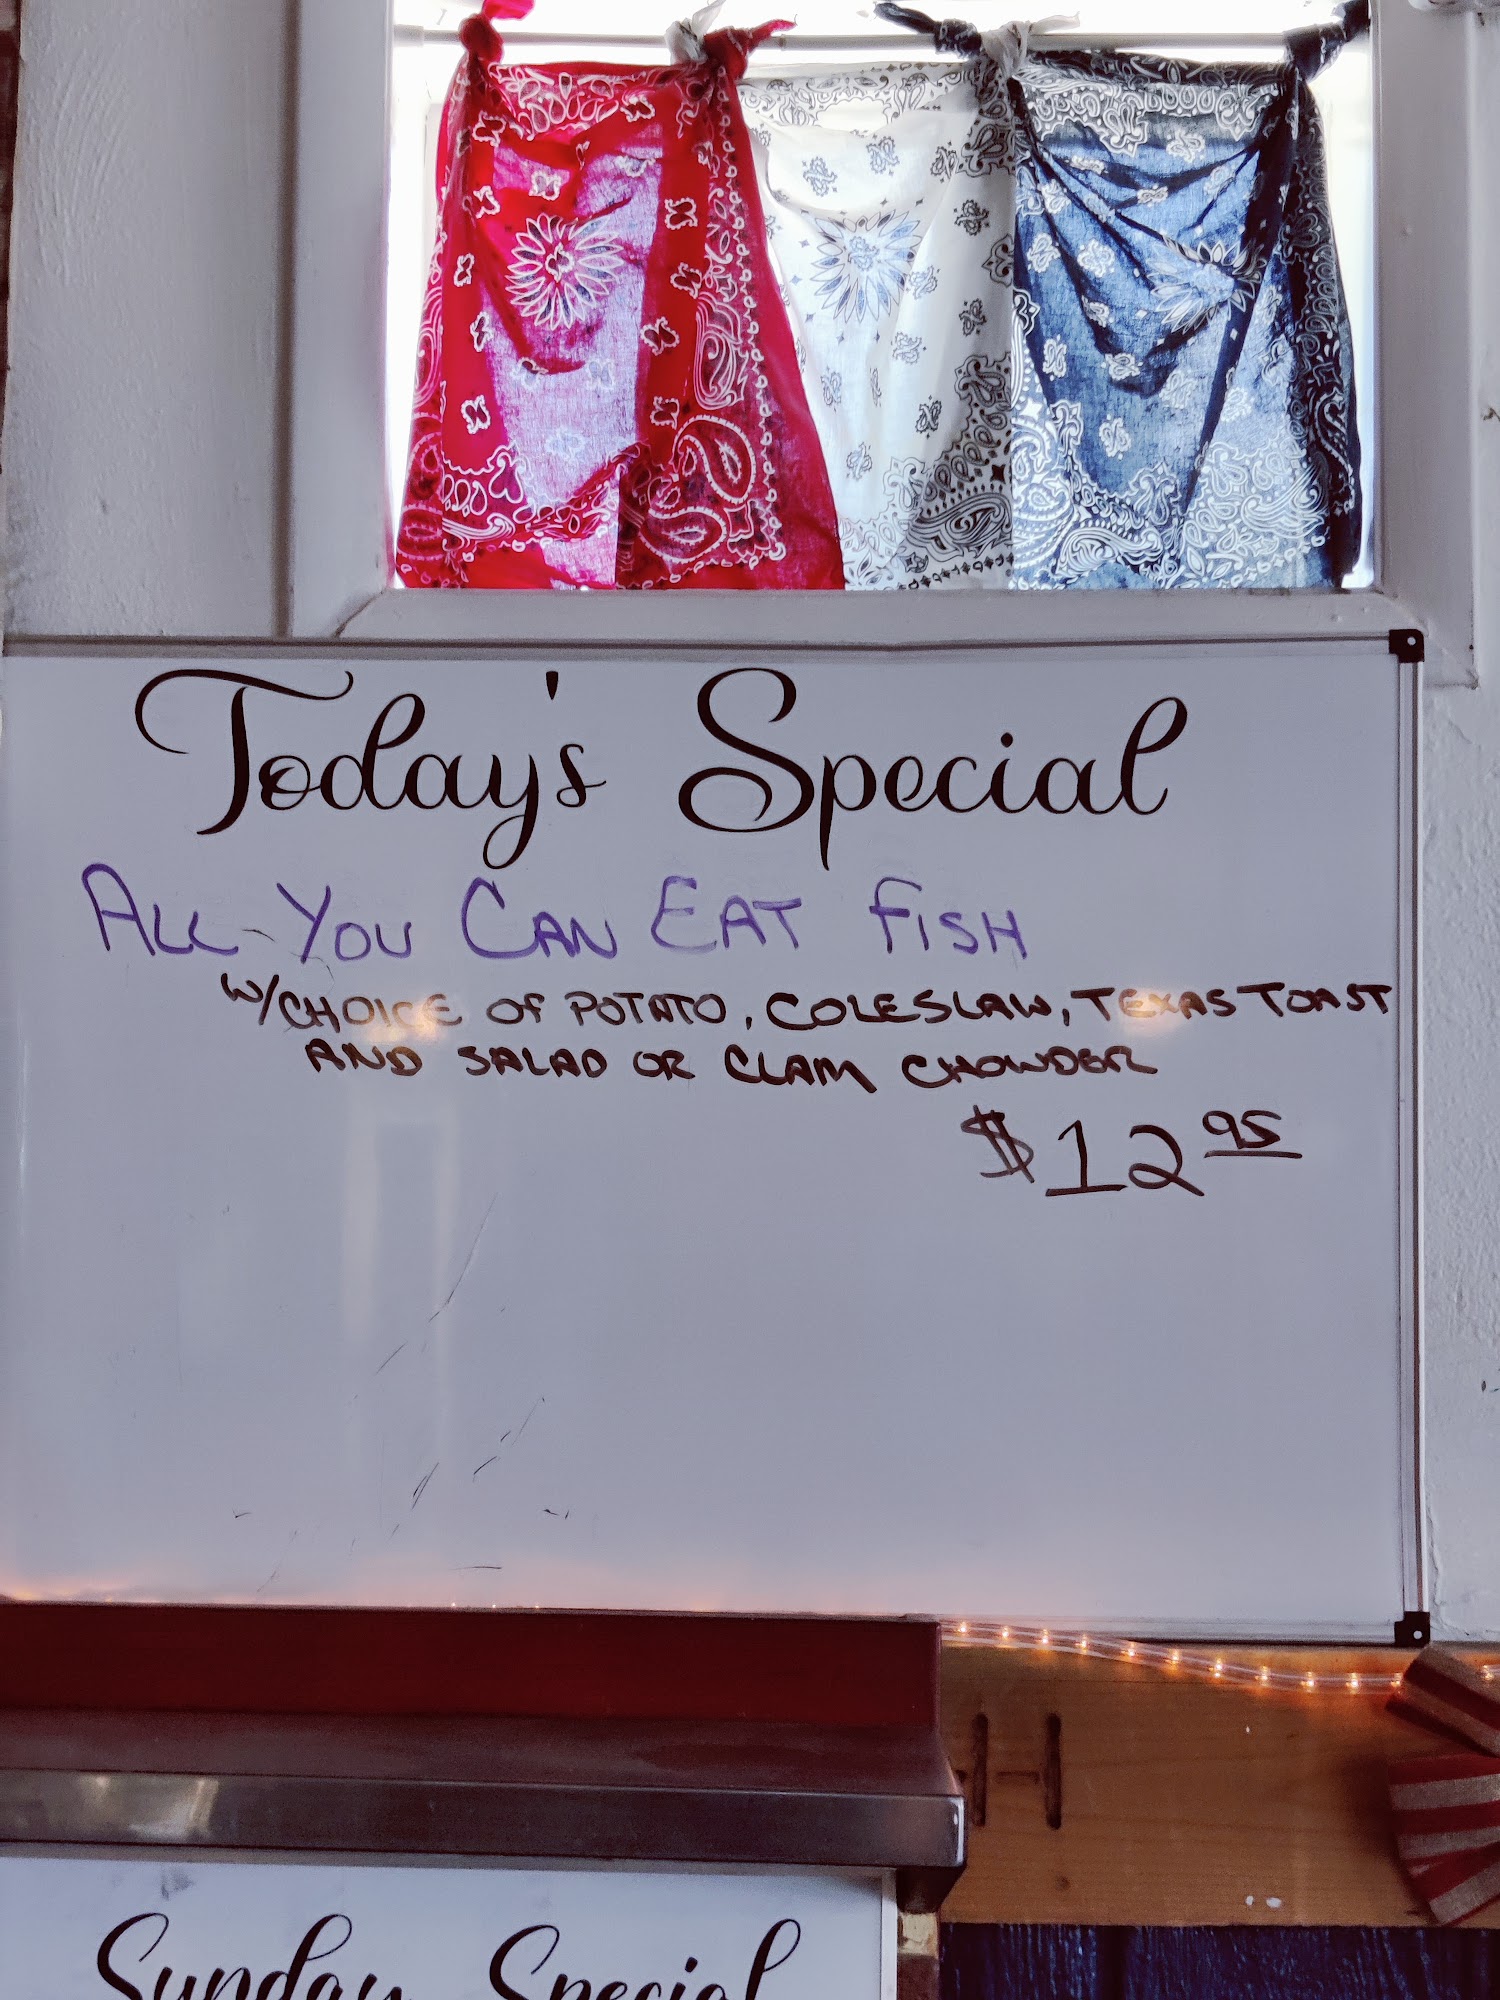 Today's Special
ALL-YOU CAN EAT FISH
W/CHOICE OF POTATO, COLESLAW, TEXAS TOAST
AND SALAD OR CLAM CHOWDER
$12.95
Sunday Special